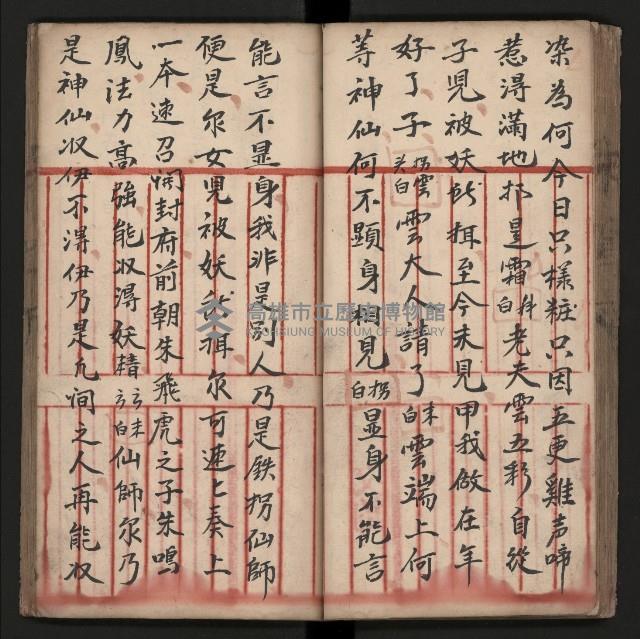 染為何今日只樣粧只因五更雞声啼
惹得滿地都是霜 科白 老夫雲五彩自從
子兒被妖 㧯至今未見甲我做在年
好了子 拐头白 雲雲大人請了 末白 雲端上何
等神仙何不顕身相見 拐白 显身不能言
能言不显身我非是別人乃是鉄拐仙師
便是尔女兒被妖 㧯尔可連匕奏上
一本速召開封府前朝朱飛虎之子朱鳴
鳳法力高強能收淂妖精 云末云白 仙師尔乃
是神仙收伊不淂伊乃是凢间之人再能収
高雄市立歷史博物館
KAOHSIUNG MUSEUM OF HISTORY